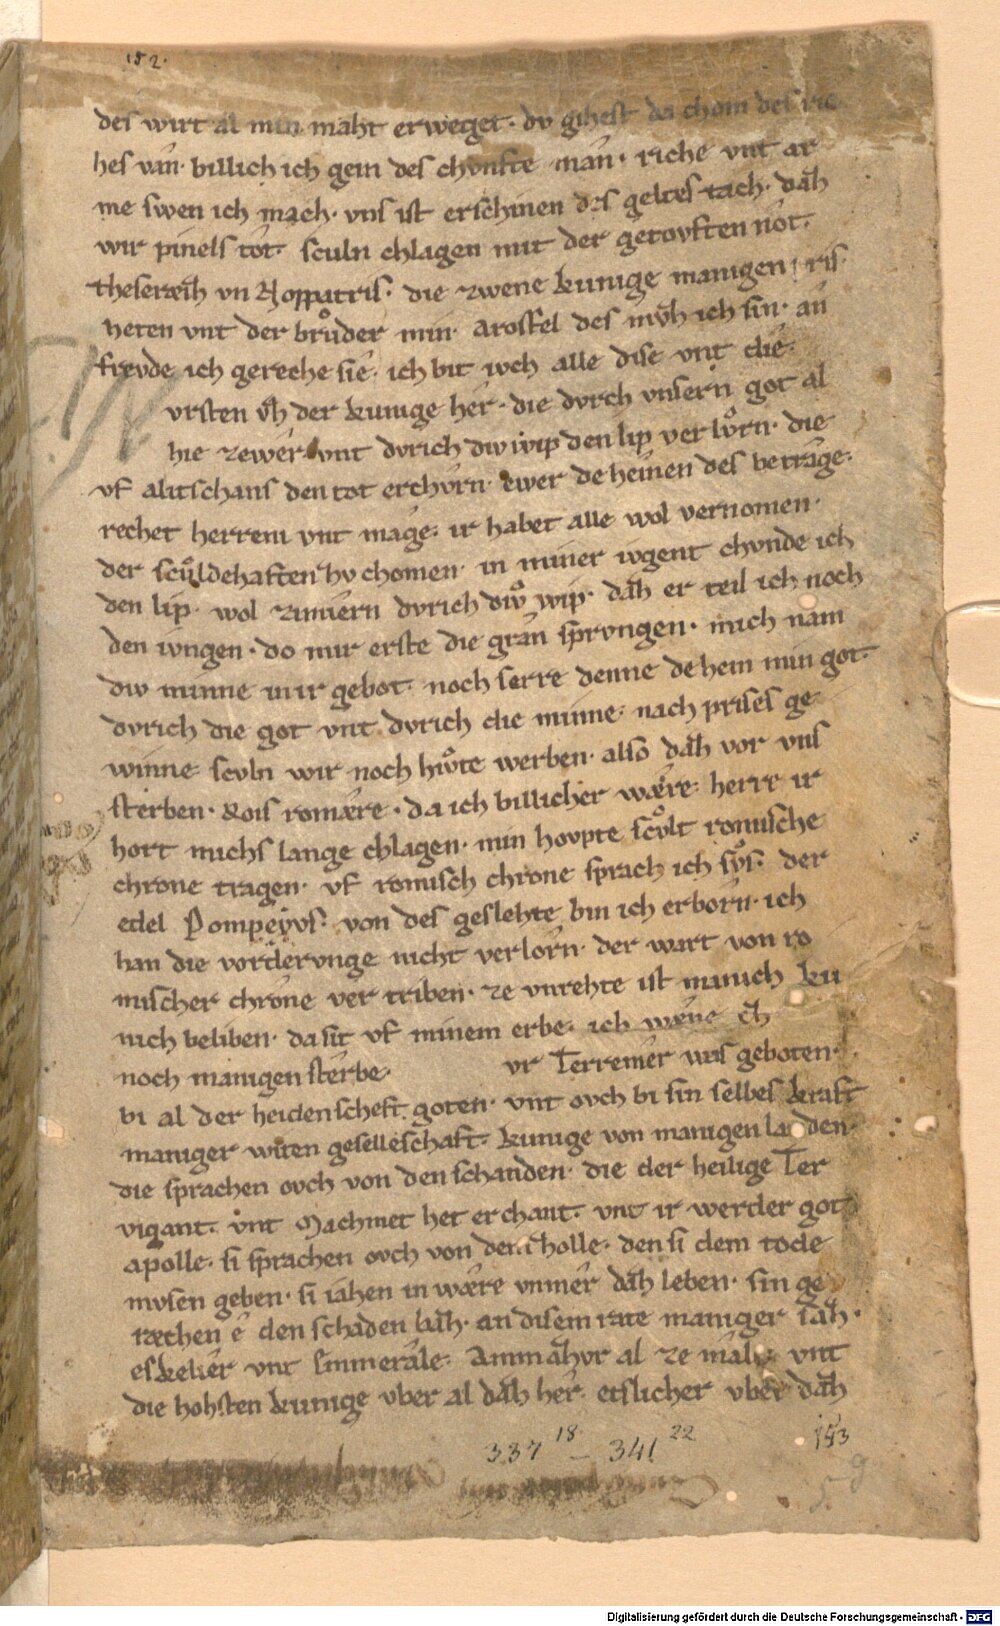 152.
des wirt al min maht erweget · dv gihest da chom des ric
hes van · billich ich gein des chvnfte man · riche vnt ar
me swen ich mach · vns ist erschinen des geltes tach · daħ
wir pinels tot · sculn chlagen mit der getovften not ·
theseræiħ vn Nopputris · die zwene kunige manigen ris ·
neten vnt der brůder min · arofel des mvͦħ ich sin · an
frevde ich gereche sie · ich bit iwch alle dise vnt die ·
vrsten vħ der kunige her · die dvrch vnsern got al
hie zewer vnt dvrich diw wip den lip verlvͦrn · die
vf alitschans den tot erchvrn · ewer deheinen des betrage ·
rechet herren vnt mage · ir habet alle wol vernomen ·
der scvͦldehaften hv chomen · in miner ivgent chvnde ich
den lip · wol zimiern dvrich diwͦ wip · daħ er teil ich noch
den ivngen · do mir erste die gran sprvngen · mich nam
diw minne in ir gebot · noch serre denne dehein min got ·
dvrich die got vnt dvrich die minne · nach prises ge
winne scvln wir noch hivͦte werben · also daħ vor vns
sterben · Rois romære · da ich billicher wære · herre ir
hort michs lange chlagen · min hovpte scvͦlt romische
chrone tragen · vf romisch chrone sprach ich svͦs · der
edel Pompeyvs · von des geslehte bin ich erborn · ich
han die vordervnge nicht verlorn · der wart von ro
mischer chrone vertriben · ze vnrehte ist manich ku
nich beliben · da sit vf minem erbe · ich wæne eħ
noch manigen sterbe · vr Terremer was geboten ·
bi al der heidenscheft goten · vnt ovch bi sin selbes kraft
maniger witen geselleschaft · kunige von manigen landen ·
die sprachen ovch von den schanden · die der heilige Ter
vigant · vnt Machmet het erchant · vnt ir werder got
apolle · si sprachen ovch von der holle · den si dem tode
mvsen geben · si iahen in wære immer daħ leben · sin ge
ræchen e den schaden baħ · an disem rate maniger saħ ·
eskelier vnt simmerale · Ammaħvr al ze male vnt
die hohsten kunige vber al daħ her · etslicher vber daħ
337 18 – 341 22
153
Digitalisierung gefördert durch die Deutsche Forschungsgemeinschaft - DFG